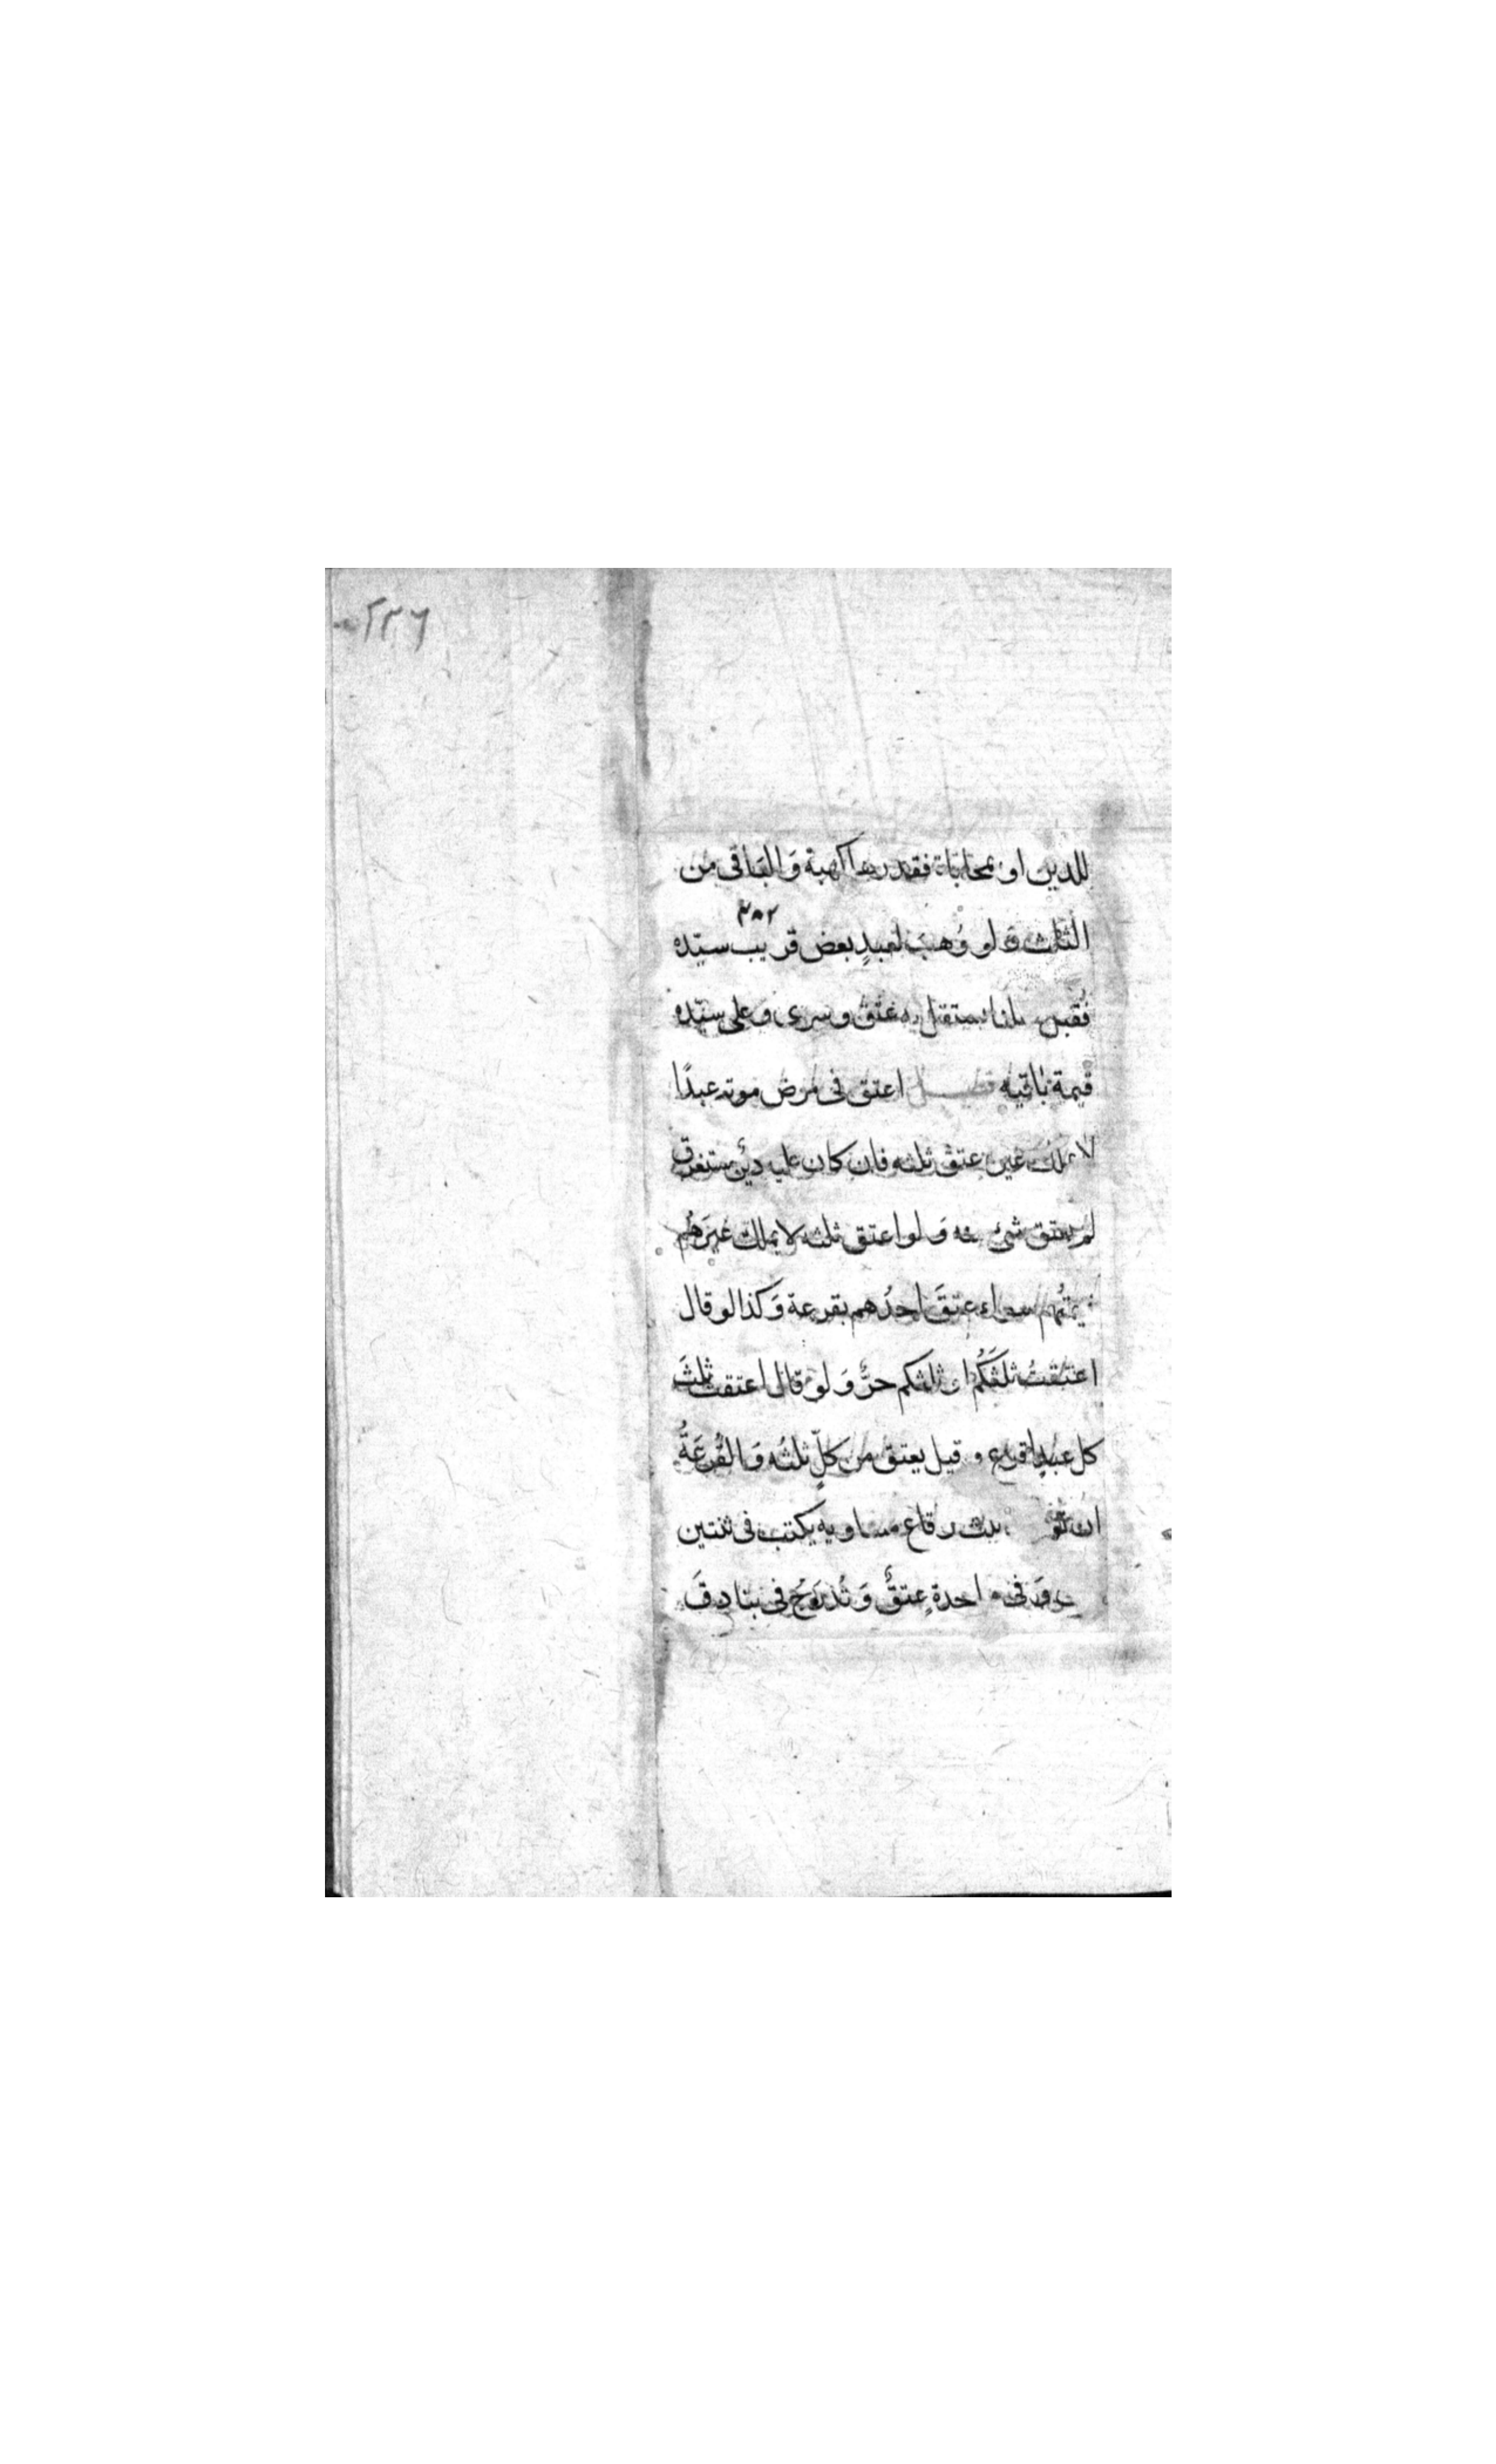 ٢٢٦
للدين او بمحاباة فقدرها كهبة وَالبَاقى من
الثلث وَ لو وُهبَ لعبدٍ بعض قريب سيّده
فقبل وقلنا يستقل به عتق وسرى وعلى سيّده
قيمة باقيه فصل اعتق فى مرض موته عبدًا
لا يملك غيره عتق ثلثه فان كان عليه دينٌ مستغرق
لم يعتق شئ منه وَ لو اعتق ثلثه لا يملك غيرَهُم
قيمتُهم سواء عتقَ احدُهم بقرعة وَكذا لو قال
اعتقتُ ثلثَكُم او ثلثكم حرٌّ وَ لو قال اعتقت ثلثَ
كل عبدٍ اقرع و قيل يعتق من كلّ ثلثُه وَ القُرعَةُ
ان رقاع متساوية يكتب فى ثنتين
وَ فى واحدةٍ عتقٌ وَ تُدرَجُ فى بنادقَ